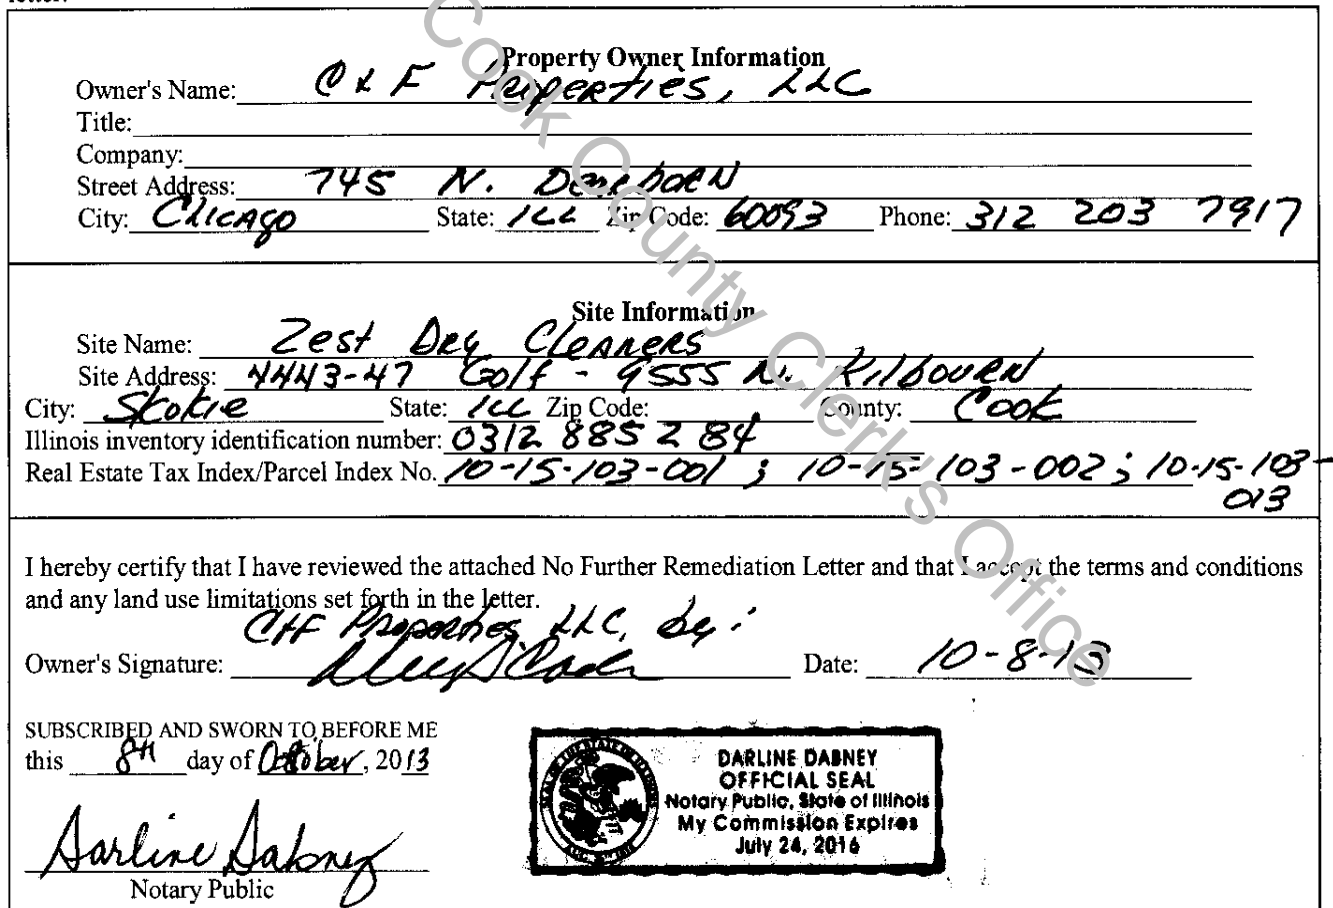 letter.
Property Owner Information
Owner's Name: C & F Properties, LLC
Title:
Company:
Street Address: 745 N. Dearborn
City: Chicago State: ILL Zip Code: 60093 Phone: 312 203 7917
Site Information
Site Name: Zest Dry Cleaners
Site Address: 4443-47 Golf - 9555 N. Kilbourn
City: Skokie State: ILL Zip Code: County: Cook
Illinois inventory identification number: 0312 885 2 84
Real Estate Tax Index/Parcel Index No. 10-15-103-001 ; 10-15-103-002 ; 10-15-103-
013
I hereby certify that I have reviewed the attached No Further Remediation Letter and that I accept the terms and conditions
and any land use limitations set forth in the letter.
C&F Properties, LLC, by:
Owner's Signature: Date: 10-8-13
SUBSCRIBED AND SWORN TO BEFORE ME
this 8th day of October, 2013
Darline Dabney
Notary Public
DARLINE DABNEY
OFFICIAL SEAL
Notary Public, State of Illinois
My Commission Expires
July 24, 2016
Cook County Clerk's Office